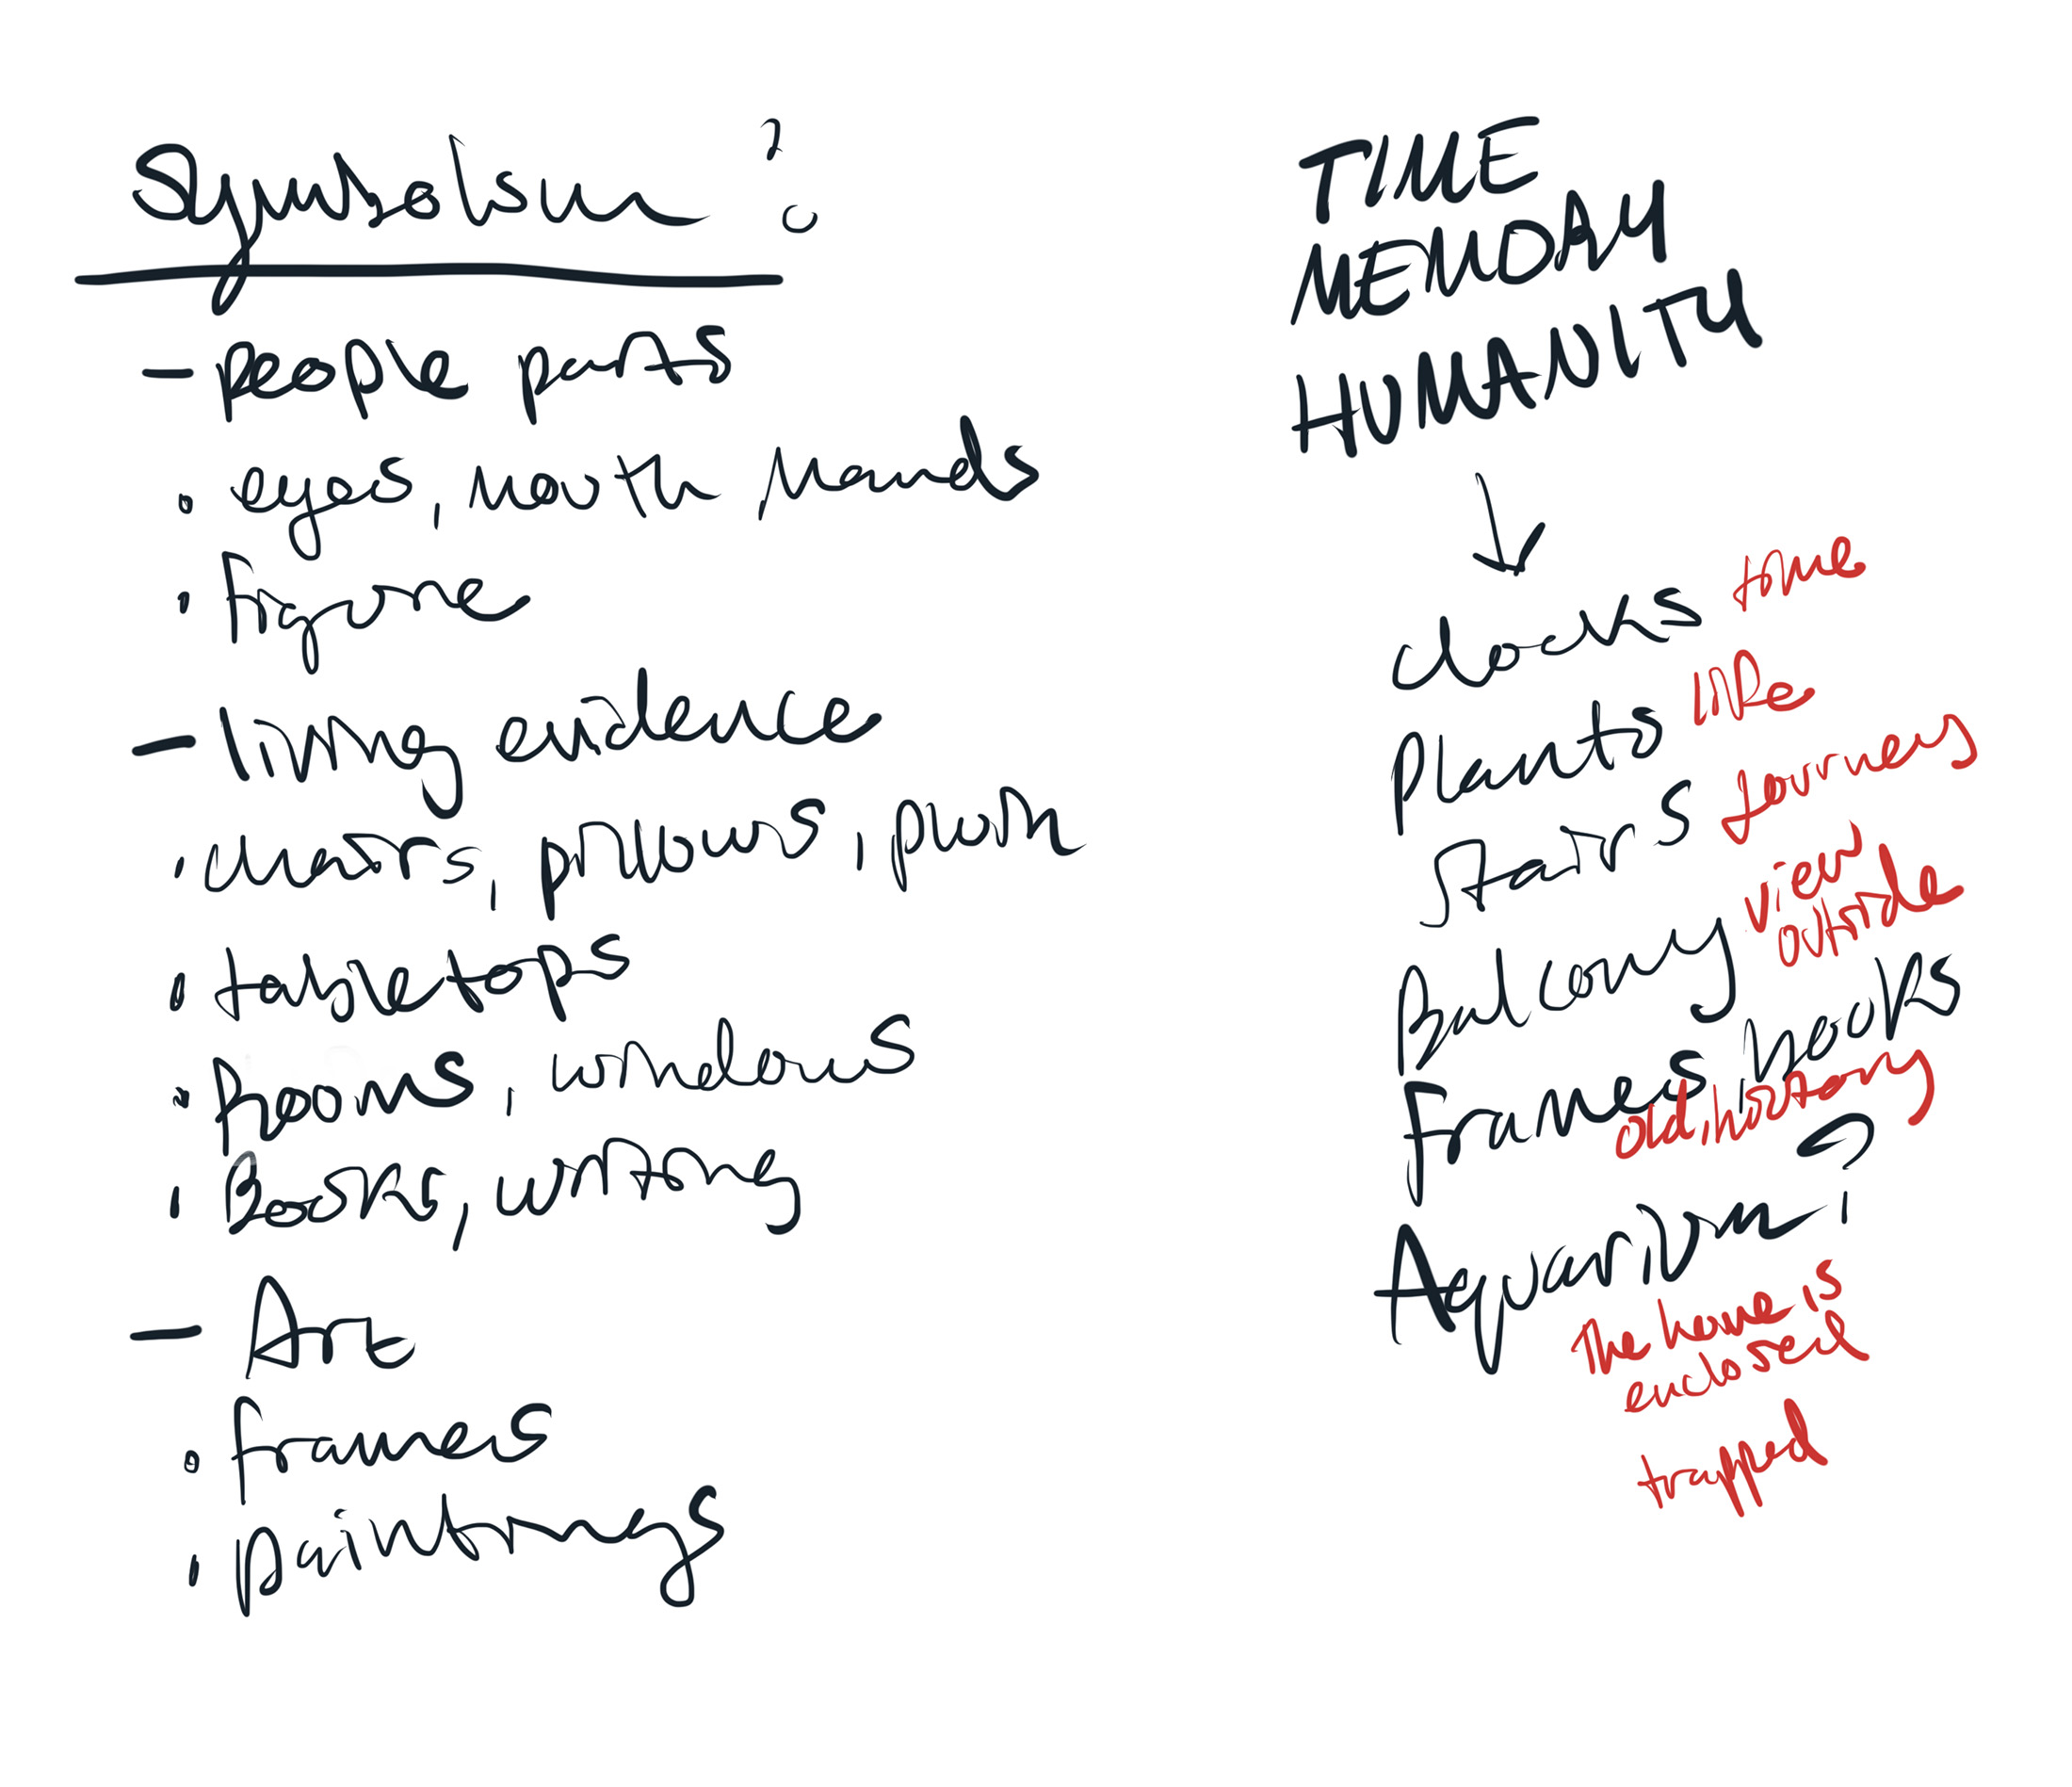 Symbolsm ?
- people parts
• eyes, mouth, hands
• figure
- living evidence
• chairs, pillows,
• tabletops
• Rooms, windows
• Books, writing
- Art
• frames
• paintings
TIME
MEMORY
HUMANITY
↓
clocks time
Plants life
stairs journeys
Balcony view outside
Frames, books
old, history
Aquarium
The home is
enclosed
trapped